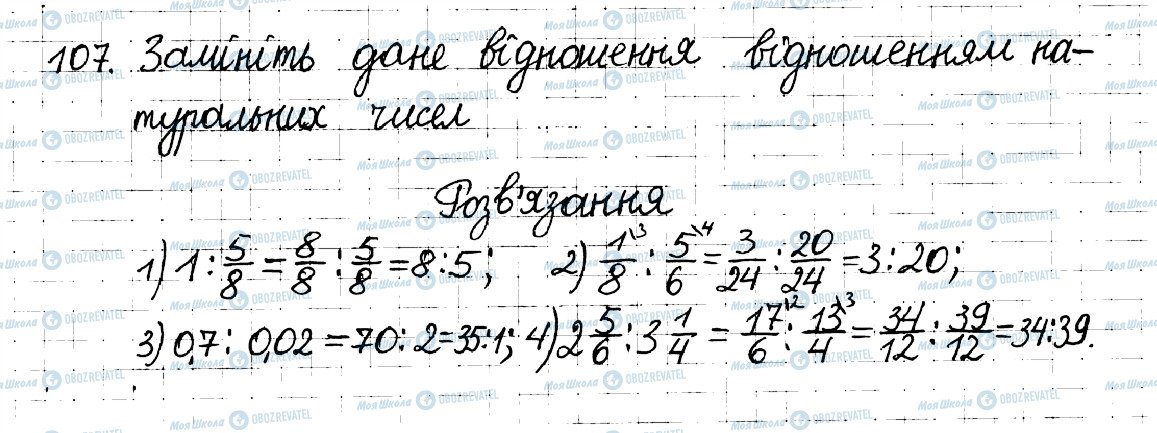 107. Замініть дане відношення відношенням на-
туральних чисел
Розв'язання
1) 1 : 5/8 = 8/8 : 5/8 = 8 : 5; 2) 1\3/8 : 5\4/6 = 3/24 : 20/24 = 3 : 20;
3) 0,7 : 0,02 = 70 : 2 = 35 : 1; 4) 2 5/6 : 3 1/4 = 17\2/6 : 13\3/4 = 34/12 : 39/12 = 34 : 39.